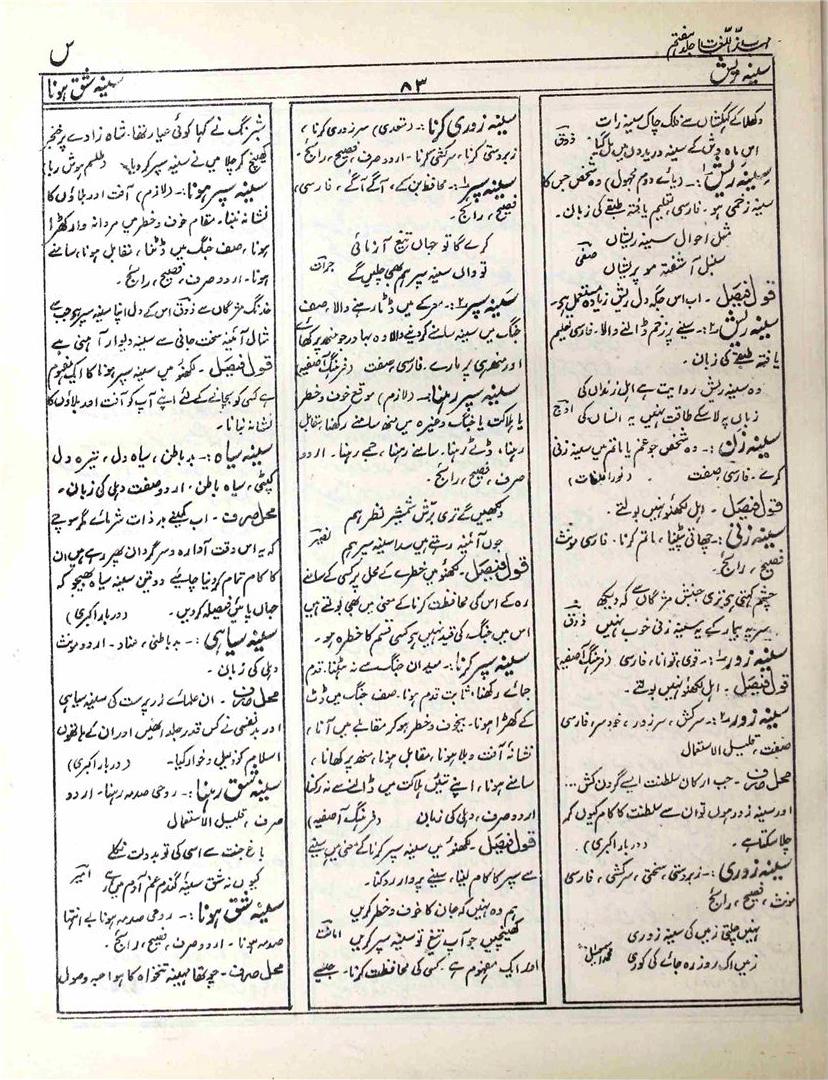 مہذب اللغات جلد ہفتم
س
سینہ ریش
۸۳
سینہ شق ہونا
دکھلا کے کہکشاں سے فلک چاک سینہ رات
اس ماہ وش کے سینہ دریدوں میں مل گیا ذوقؔ
سینہ ریش ۱:۔ (یائے دوم مجہول) وہ شخص جس کا
سینہ زخمی ہو۔ فارسی، تعلیم یافتہ طبقے کی زبان۔
مثل احوال سینہ ریشاں
سنبل آشفتہ مو پریشاں صفیؔ
قول فیصل۔ اب اس جگہ دل ریش زیادہ مستعمل ہے۔
سینہ ریش ۲:۔ سینے پر زخم ڈالنے والا۔ فارسی تعلیم
یافتہ طبقے کی زبان۔
وہ سینہ ریش روایت ہے اہل زنداں کی
زباں پر لا سکے طاقت نہیں یہ انساں کی اوجؔ
سینہ زن:۔ وہ شخص جو غم یا ماتم میں سینہ زنی
کرے۔ فارسی، صفت۔ (نور اللغات)
قول فیصل۔ اہل لکھنؤ نہیں بولتے۔
سینہ زنی:۔ چھاتی پیٹنا، ماتم کرنا۔ فارسی مونث
فصیح، رائج۔
چشم کہتی ہے تری جنبش مژگاں سے کہ دیکھ
سر پہ بیمار کے یہ سینہ زنی خوب نہیں ذوقؔ
سینہ زور ۱:۔ قوی، توانا، فارسی (فرہنگ آصفیہ)
قول فیصل۔ اہل لکھنؤ نہیں بولتے۔
سینہ زور ۲:۔ سرکش، سرزور، خودسر، فارسی
صفت، قلیل الاستعمال
محل صرف۔ جب ارکان سلطنت ایسے گردن کش...
اور سینہ زور ہوں تو ان سے سلطنت کا کام کیوں کر
چل سکتا ہے۔ (دربار اکبری)
سینہ زوری:۔ زبردستی، سختی، سرکشی، فارسی
مونث، فصیح، رائج
نہیں چلتی زمیں کی سینہ زوری
زمیں اک روز رہ جائے گی کوری
سینہ زوری کرنا:۔ (متعدی) سرزوری کرنا،
زبردستی کرنا، سرکشی کرنا۔ اردو صرف، فصیح، رائج۔
سینہ سپر ۱:۔ محافظ بن کے، آگے آگے، فارسی،
فصیح، رائج۔
کرے گا تو جہاں تیغ آزمائی
تو واں سینہ سپر ہم بھی چلیں گے جرأتؔ
سینہ سپر ۲:۔ معرکے میں ڈٹا رہنے والا، صف
جنگ میں سینہ سامنے کر دینے والا وہ بہادر جو منھ پر کھائے
اور منھ ہی پر مارے۔ فارسی صفت (فرہنگ آصفیہ)
سینہ سپر رہنا:۔ (لازم) موقع خوف و خطر
یا ہلاکت یا جنگ وغیرہ میں منھ سامنے رکھنا، مقابل
رہنا، ڈٹے رہنا۔ سامنے رہنا، جمے رہنا۔ اردو
صرف، فصیح، رائج۔
دیکھیں گے تری برش شمشیر نظر ہم
جوں آئینہ رہتے ہیں سدا سینہ سپر ہم نصیرؔ
قول فیصل۔ لکھنؤ میں خطرے کے محل پر کسی کے سامنے
رہ کے اس کی محافظت کرنا کے معنی میں بھی بولتے ہیں
اس میں جنگ کی قید نہیں ہے کسی قسم کا خطرہ ہو۔
سینہ سپر کرنا:۔ میدان جنگ سے نہ ہٹنا۔ قدم
جمائے رکھنا، ثابت قدم ہونا۔ صف جنگ میں ڈٹ
کے کھڑا ہونا۔ بیخوف و خطر ہو کر مقابلے میں آنا،
نشانۂ آفت و بلا ہونا، مقابل ہونا، منھ پر کھانا،
سامنے ہونا، اپنے تئیں ہلاکت میں ڈالنے سے نہ رکنا
اردو صرف، دہلی کی زبان (فرہنگ آصفیہ)
قول فیصل۔ لکھنؤ میں سینہ سپر کرنا کے معنی ہیں سینے
سے سپر کا کام لینا، سینے پر وار روکنا۔
ہم وہ نہیں کہ جان کا خوف و خطر کریں
کھینچیں جو آپ تیغ تو سینہ سپر کریں امانتؔ
اور ایک مفہوم ہے۔ کسی کی محافظت کرنا۔ جیسے
شبرنگ نے کہا کوئی عیار تھا۔ شاہ زادے پر خنجر
کھینچ کر چلا میں نے سینہ سپر کر دیا۔ (طلسم ہوش ربا)
سینہ سپر ہونا:۔ (لازم) آفت اور بلاؤں کا
نشانہ بننا۔ مقام خوف و خطر میں مردانہ وار کھڑا
ہونا، صف جنگ میں ڈٹنا، مقابل ہونا، سامنے
ہونا۔ اردو صرف، فصیح، رائج۔
خدنگ مژگاں سے ذوقؔ اس کے دل اپنا سینہ سپر ہے جب سے
مثال آئینہ سخت جانی سے سینہ دیوار آہنی ہے
قول فیصل۔ لکھنؤ میں سینہ سپر ہونا کا ایک مفہوم
ہے کسی کو بچانے کے لئے اپنے آپ کو آفت اور بلاؤں کا
نشانہ بنانا۔
سینہ سیاہ:۔ بد باطن، سیاہ دل، تیرہ دل
کپٹی، سیاہ باطن۔ اردو صفت دہلی کی زبان۔
محل صرف۔ اب کمینے بد ذات شرمائے مگر سوچے
کہ یہ اس وقت آوارہ و سرگرداں پھر رہے ہیں ان
کا کام تمام کر دینا چاہیئے دو تین سینہ سیاہ بھیجو کہ
جہاں پائیں فیصلہ کر دیں۔ (دربار اکبری)
سینہ سیاہی:۔ بد باطنی، عناد۔ اردو مونث
دہلی کی زبان۔
محل صرف۔ ان علمائے زر پرست کی سینہ سیاہی
اور بد نفسی نے کس قدر جلد انھیں اور ان کے ہاتھوں
اسلام کو ذلیل و خوار کیا۔ (دربار اکبری)
سینہ شق رہنا:۔ روحی صدمہ رہنا۔ اردو
صرف، قلیل الاستعمال
باغ جنت سے اسی کی تو بدولت نکلے
کیوں نہ شق سینۂ گندم غم آدم میں رہے امیرؔ
سینہ شق ہونا:۔ روحی صدمہ ہونا بے انتہا
صدمہ ہونا۔ اردو صرف، فصیح، رائج۔
محل صرف۔ جو تھا مہینہ تنخواہ کا ہوا جبہ وصول